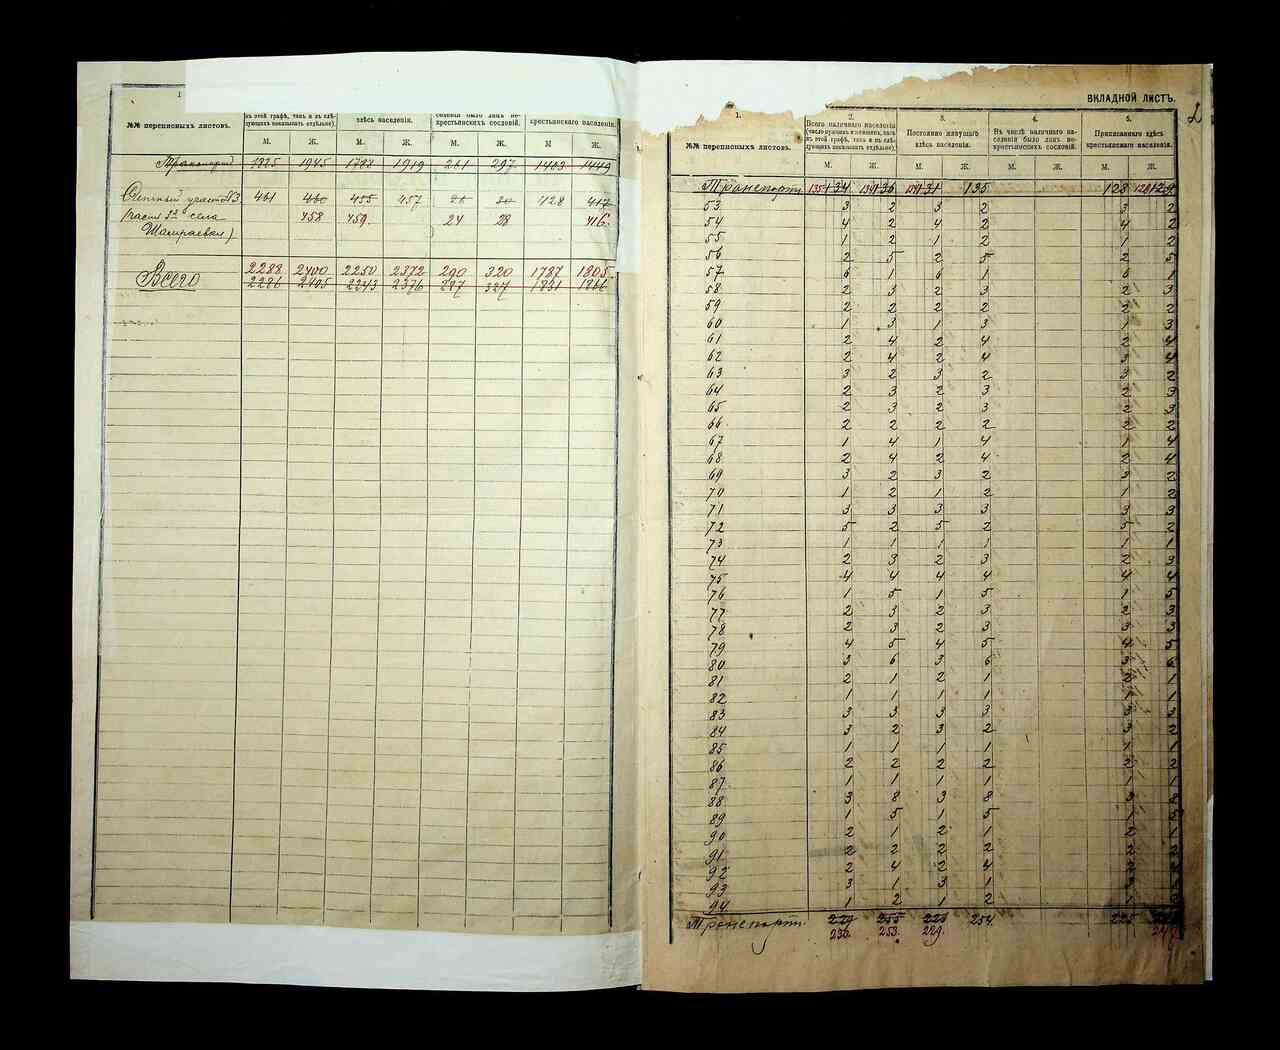 1
№№ переписныхъ листовъ.
въ этой графѣ, такъ и въ слѣ-
дующихъ показывать отдѣльно).
здѣсь населенія.
селенія было лицъ не-
крестьянскихъ сословій.
крестьянскаго населенія.
М. Ж. М. Ж. М. Ж. М Ж.
Транспортъ 1945 1919 261 297 1403 1449
Счетный участ. №3 461 460 455 457 30 428 417
(часть 5ъ села 458 459. 24 28 416.
Шамраевки)
2288 2400 2250 2372 290 320 1787 1805
Всего 2286 2405 2243 2376 287 327 1831 1866
ВКЛАДНОЙ ЛИСТЪ.
2
1. 2. 3. 4. 5.
№№ переписныхъ листовъ.
Всего наличнаго населенія
(число мужчинъ и женщинъ, какъ
въ этой графѣ, такъ и въ слѣ-
дующихъ показывать отдѣльно).
Постоянно живущаго
здѣсь населенія.
Въ числѣ наличнаго на-
селенія было лицъ не-
крестьянскихъ сословій.
Приписаннаго здѣсь
крестьянскаго населенія.
М. Ж. М. Ж. М. Ж. М. Ж.
Транспортъ 135 134 136 131 135 128 129
53 3 2 3 2 3 2
54 4 2 4 2 4 2
55 1 2 1 2 1 2
56 2 5 2 5 2 5
57 6 1 6 1 6 1
58 2 3 2 3 2 3
59 2 2 2 2 2 2
60 1 3 1 3 1 3
61 2 4 2 4 2 4
62 2 4 2 4 3 4
63 3 2 3 2 3 2
64 2 3 2 3 2 3
65 2 3 2 3 2 3
66 2 2 2 2 2 2
67 1 4 1 4 1 4
68 2 4 2 4 2 4
69 3 2 3 2 3 2
70 1 2 1 2 1 2
71 3 3 3 3 3 3
72 5 2 5 2 5 2
73 1 1 1 1 1 1
74 2 3 2 3 2 3
75 4 4 4 4 4 4
76 1 5 1 5 1 5
77 2 3 2 3 2 3
78 2 3 2 3 3 3
79 4 5 4 5 4 5
80 3 6 3 6 3 6
81 2 1 2 1 2 1
82 1 1 1 1 1 1
83 3 3 3 3 3 3
84 3 2 3 2 3 2
85 1 1 1 1 1 1
86 2 2 2 2 2 2
87 1 1 1 1 1 1
88 3 8 3 8 3
89 1 5 1 5 1
90 2 1 2 1 2
91 2 2 2 2 2
92 2 4 2 4
93 3 1 3 1
94 1 2 1 2
Транспортъ. 229 255 223 254 225
230. 253. 229. 247